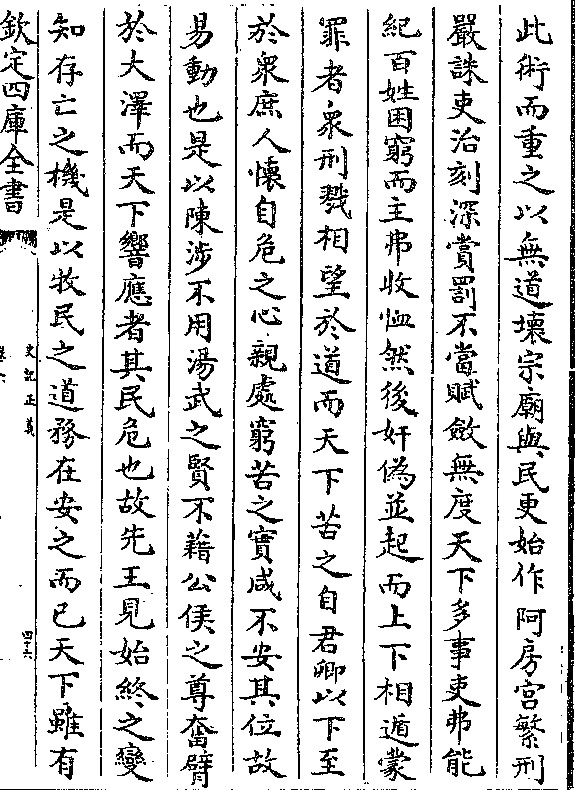 此術而重之以無道壞宗廟與民更始作阿房宫繁刑
嚴誅吏治刻深賞罰不當賦斂無度天下多事吏弗能
紀百姓困窮而主弗收恤然後奸偽並起而上下相遁蒙
罪者衆刑戮相望於道而天下苦之自君卿以下至
於衆庶人懷自危之心親處窮苦之實咸不安其位故
易動也是以陳涉不用湯武之賢不藉公侯之尊奮臂
於大澤而天下響應者其民危也故先王見始終之變
知存亡之機是以牧民之道務在安之而已天下雖有
欽定四庫全書
史記正義
卷六
四十六